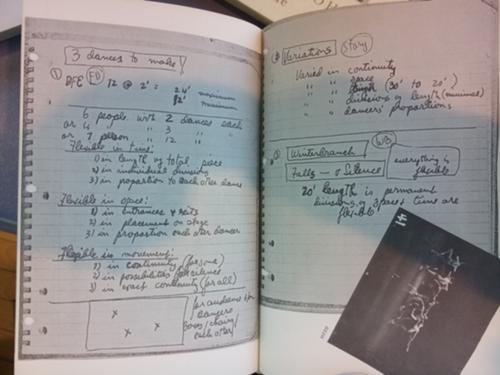 3 dances to make
① DFE FD 12 @ 2' = 24' maximum
12' minimum
6 people with 2 dances each
or 4 " " 3 "
or 1 person " 12 "
Flexible in time:
1) in length of total piece
2) in individual divisions
3) in proportion to each other dance
Flexible in space:
1) in entrances & exits
2) in placement on stage
3) in proportion each other dancer
Flexible in movement:
1) in continuity (for some)
2) in possibilities for silences
3) in exact continuity (for all)
x x x
dancers
each other
② Variations Story
Varied in continuity
" " space
" " length (30' to 20')
" " divisions of length (minimal)
" " dancers' proportions
③ Winterbranch
Falls - & Silence
everything is flexible
20' length is permanent
divisions of space & time are
flexible